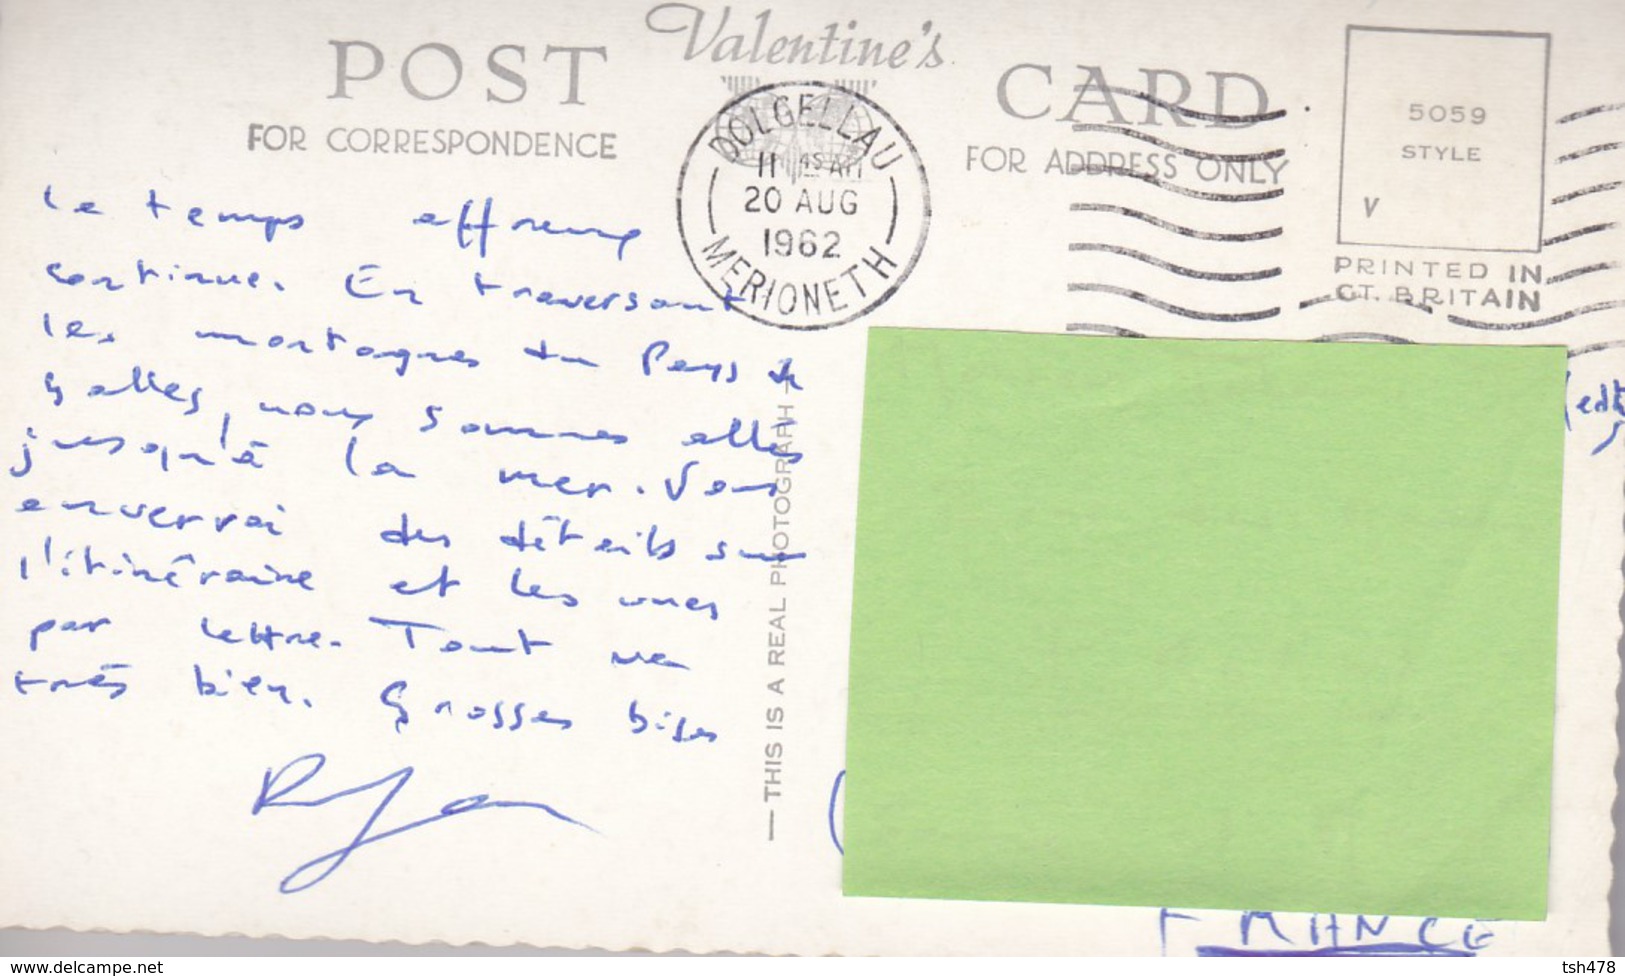 Valentine's
POST CARD
FOR CORRESPONDENCE
FOR ADDRESS ONLY
DOLGELLAU
11 AM
20 AUG
1962
MERIONETH
5059
STYLE
V
PRINTED IN
GT. BRITAIN
Le temps affreux
continue. En traversant
les montagnes du Pays de
Galles, nous sommes allés
jusqu'à la mer. Vous
enverrai des détails sur
l'itinéraire et les vues
par lettre. Tout va
très bien. Grosses bises
— THIS IS A REAL PHOTOGRAPH —
FRANCE
www.delcampe.net
tsh478